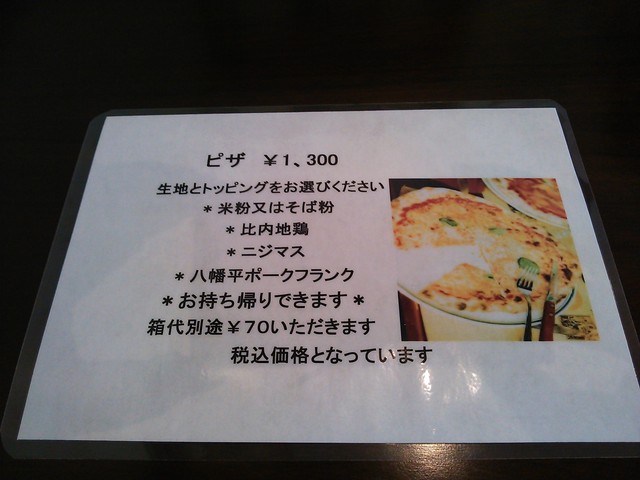 ピザ ￥１、300
生地とトッピングをお選びください
＊米粉又はそば粉
＊比内地鶏
＊ニジマス
＊八幡平ポークフランク
＊お持ち帰りできます＊
箱代別途￥７０いただきます
税込価格となっています